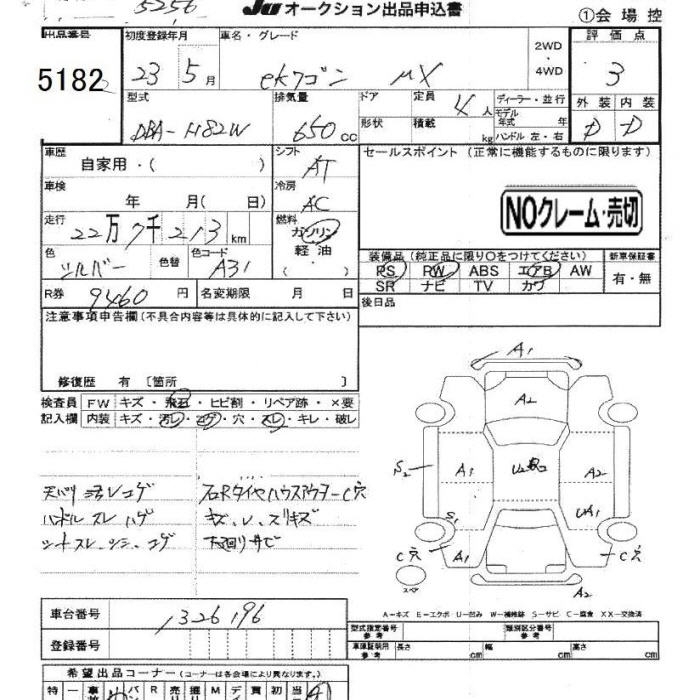 5256 JU オークション出品申込書 ①会場控
出品番号 初度登録年月 車名・グレード 2WD・4WD 評価点
5182 23年5月 ekワゴン μX 3
型式 排気量 ドア 定員 4人 ディーラー・並行 外装 内装
DBA-H82W 650cc 形状 積載 kg モデル年式 年 ハンドル 左・右 D D
車歴 自家用・( ) シフト AT セールスポイント (正常に機能するものに限ります)
車検 年 月( 日) 冷房 AC
NOクレーム・売切
走行 22万7千213km 燃料 ガソリン 軽油・
色 シルバー 色替 色コード A31 装備品 (純正品に限り○をつけてください) 新車保証書
PS RW ABS エアB AW 有・無
R券 9460円 名変期限 月 日 SR ナビ TV カワ
後日品
注意事項申告欄 (不具合内容等は具体的に記入して下さい)
修復歴 有 〔箇所 〕
検査員 FW キズ・飛石・ヒビ割・リペア跡・×要
記入欄 内装 キズ・汚レ・コゲ・穴・スレ・キレ・破レ
A1
A2
S2 A1 U2 A2
S1 UA1
C穴 A1 C穴
スペア A2
天バリ汚レコゲ 右RタイヤハウスアウターC穴
ハンドルスレハゲ
シートスレ、シミ、コゲ 下回りサビ
A-キズ E-エクボ U-凹み W-補修跡 S-サビ C-腐食 XX-交換済
車台番号 1326196
型式指定番号 参考 類別区分番号 参考
登録番号 車庫証明用 参考 長さ cm 幅 cm 高さ cm
希望出品コーナー (コーナーは各会場により異なります)